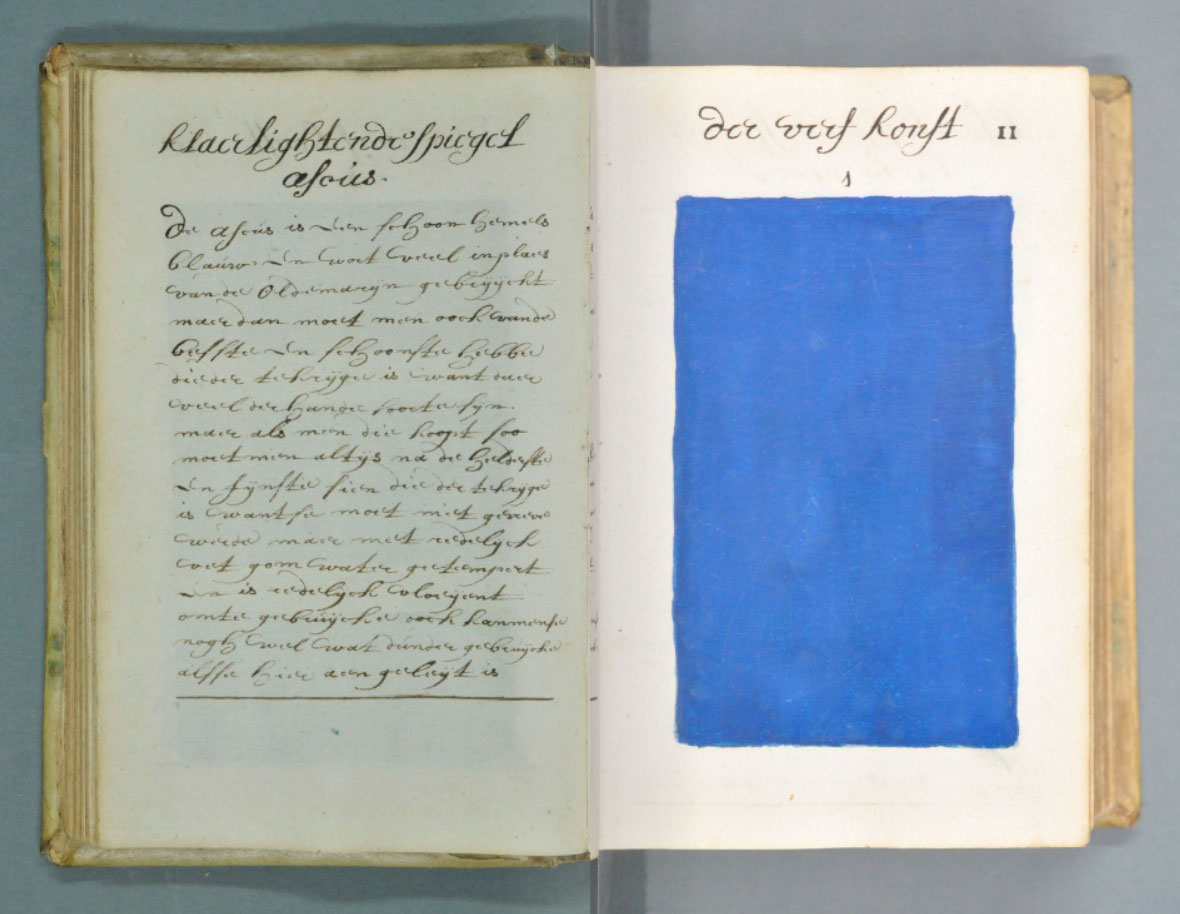 klaerlightende spiegel
asuis.
De asuis is een schoon hemels
blauw en wort veel in plaes
van de Oldemaryn gebruyckt
maer dan moet men oock vande
besste en schoonste hebbe
die der tekryge is want daer
veel der hande soorte syn.
maer als men die koopt soo
moet men altijs na de helderste
en fynste sien die der tekryge
is want se moet niet gevreve
werde maer met redelyck
vet gom water getempert
en is redelyck vloeyent
omte gebruycke oock kanmense
nogh wel wat dunder gebruycke
alsse hier aen geleyt is
der verf konst 11
1